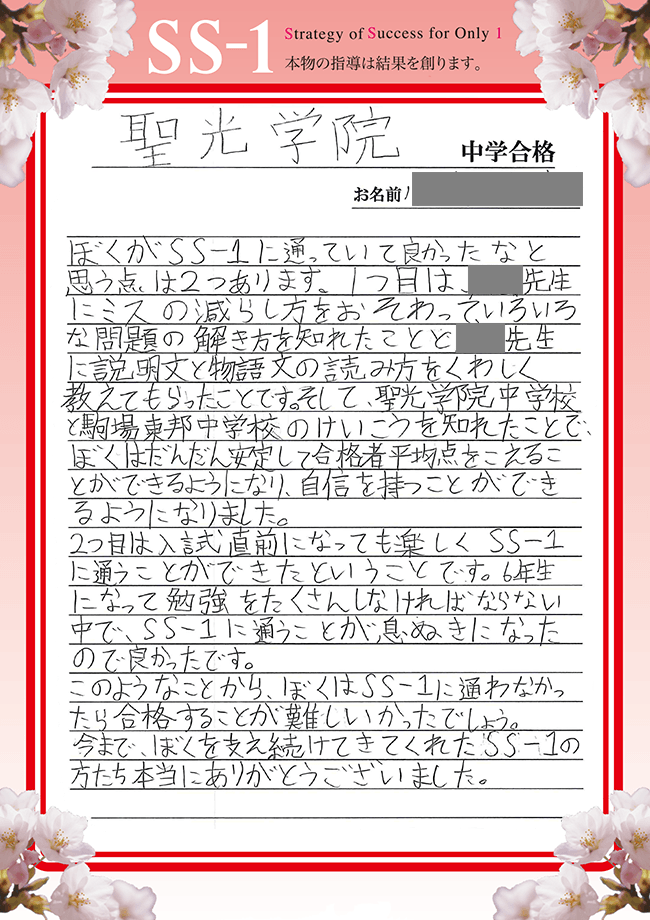 SS-1
Strategy of Success for Only 1
本物の指導は結果を創ります。
聖光学院
中学合格
お名前
ぼくがSS-1に通っていて良かったなと
思う点は2つあります。1つ目は、先生
にミスの減らし方をおそわって、いろいろ
な問題の解き方を知れたことと先生
に説明文と物語文の読み方をくわしく
教えてもらったことです。そして、聖光学院中学校
と駒場東邦中学校のけいこうを知れたことで、
ぼくはだんだん安定して合格者平均点をこえるこ
とができるようになり、自信を持つことができ
るようになりました。
2つ目は入試直前になっても楽しくSS-1
に通うことができたということです。6年生
になって勉強をたくさんしなければならない
中で、SS-1に通うことが息ぬきになった
ので良かったです。
このようなことから、ぼくはSS-1に通わなかっ
たら合格することが難しいかったでしょう。
今まで、ぼくを支え続けてきてくれたSS-1の
方たち本当にありがとうございました。